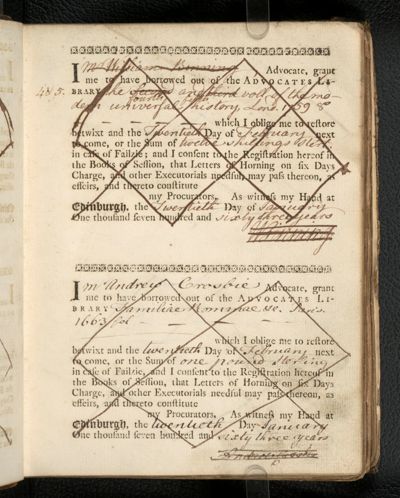 I Mr William Binning Advocate, grant
me to have borrowed out of the ADVOCATES LI-
485. BRARY the second and third voll. of the mo-
fourth
dern universal history Lond. 1759 8º
which I oblige me to restore
betwixt and the Twentieth Day of February next
to come, or the Sum of Twelve shillings Ster:
in case of Failzie; and I consent to the Registration hereof in
the Books of Session, that Letters of Horning on six Days
Charge, and other Executorials needful may pass thereon, as
effeirs, and thereto constitute
my Procurators, As witness my Hand at
Edinburgh, the Twentieth Day of January
One thousand seven hundred and sixty three years
I Mr Andrew Crosbie Advocate, grant
me to have borrowed out of the ADVOCATES LI-
BRARY Familiae Romanae Paris
1663 fol
which I oblige me to restore
betwixt and the twentieth Day of February next
to come, or the Sum of one pound Sterling
in case of Failzie, and I consent to the Registration hereof in
the Books of Session, that Letters of Horning on six Days
Charge, and other Executorials needful may pass thereon, as
effeirs, and thereto constitute
my Procurators, As witness my Hand at
Edinburgh, the twentieth Day January
One thousand seven hundred and sixty three years
Andrew Crosbie